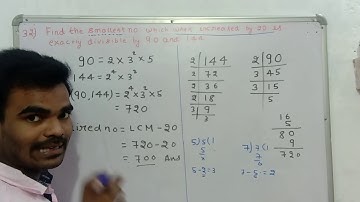 32) Find the smallest no which when increased by 20 is
exactly divisible by 90 and 144
90 = 2 × 3² × 5
144 = 2⁴ × 3²
(90,144) = 2⁴ × 3² × 5
= 720
ired no = LCM - 20
= 720 - 20
= 700 Ans
2 | 144
2 | 72
2 | 36
2 | 18
3 | 9
3
2 | 90
3 | 45
3 | 15
5
16
5
80
9
720
5) 5 (1
5
7) 7 (1
7
5-2=3
7-5=2